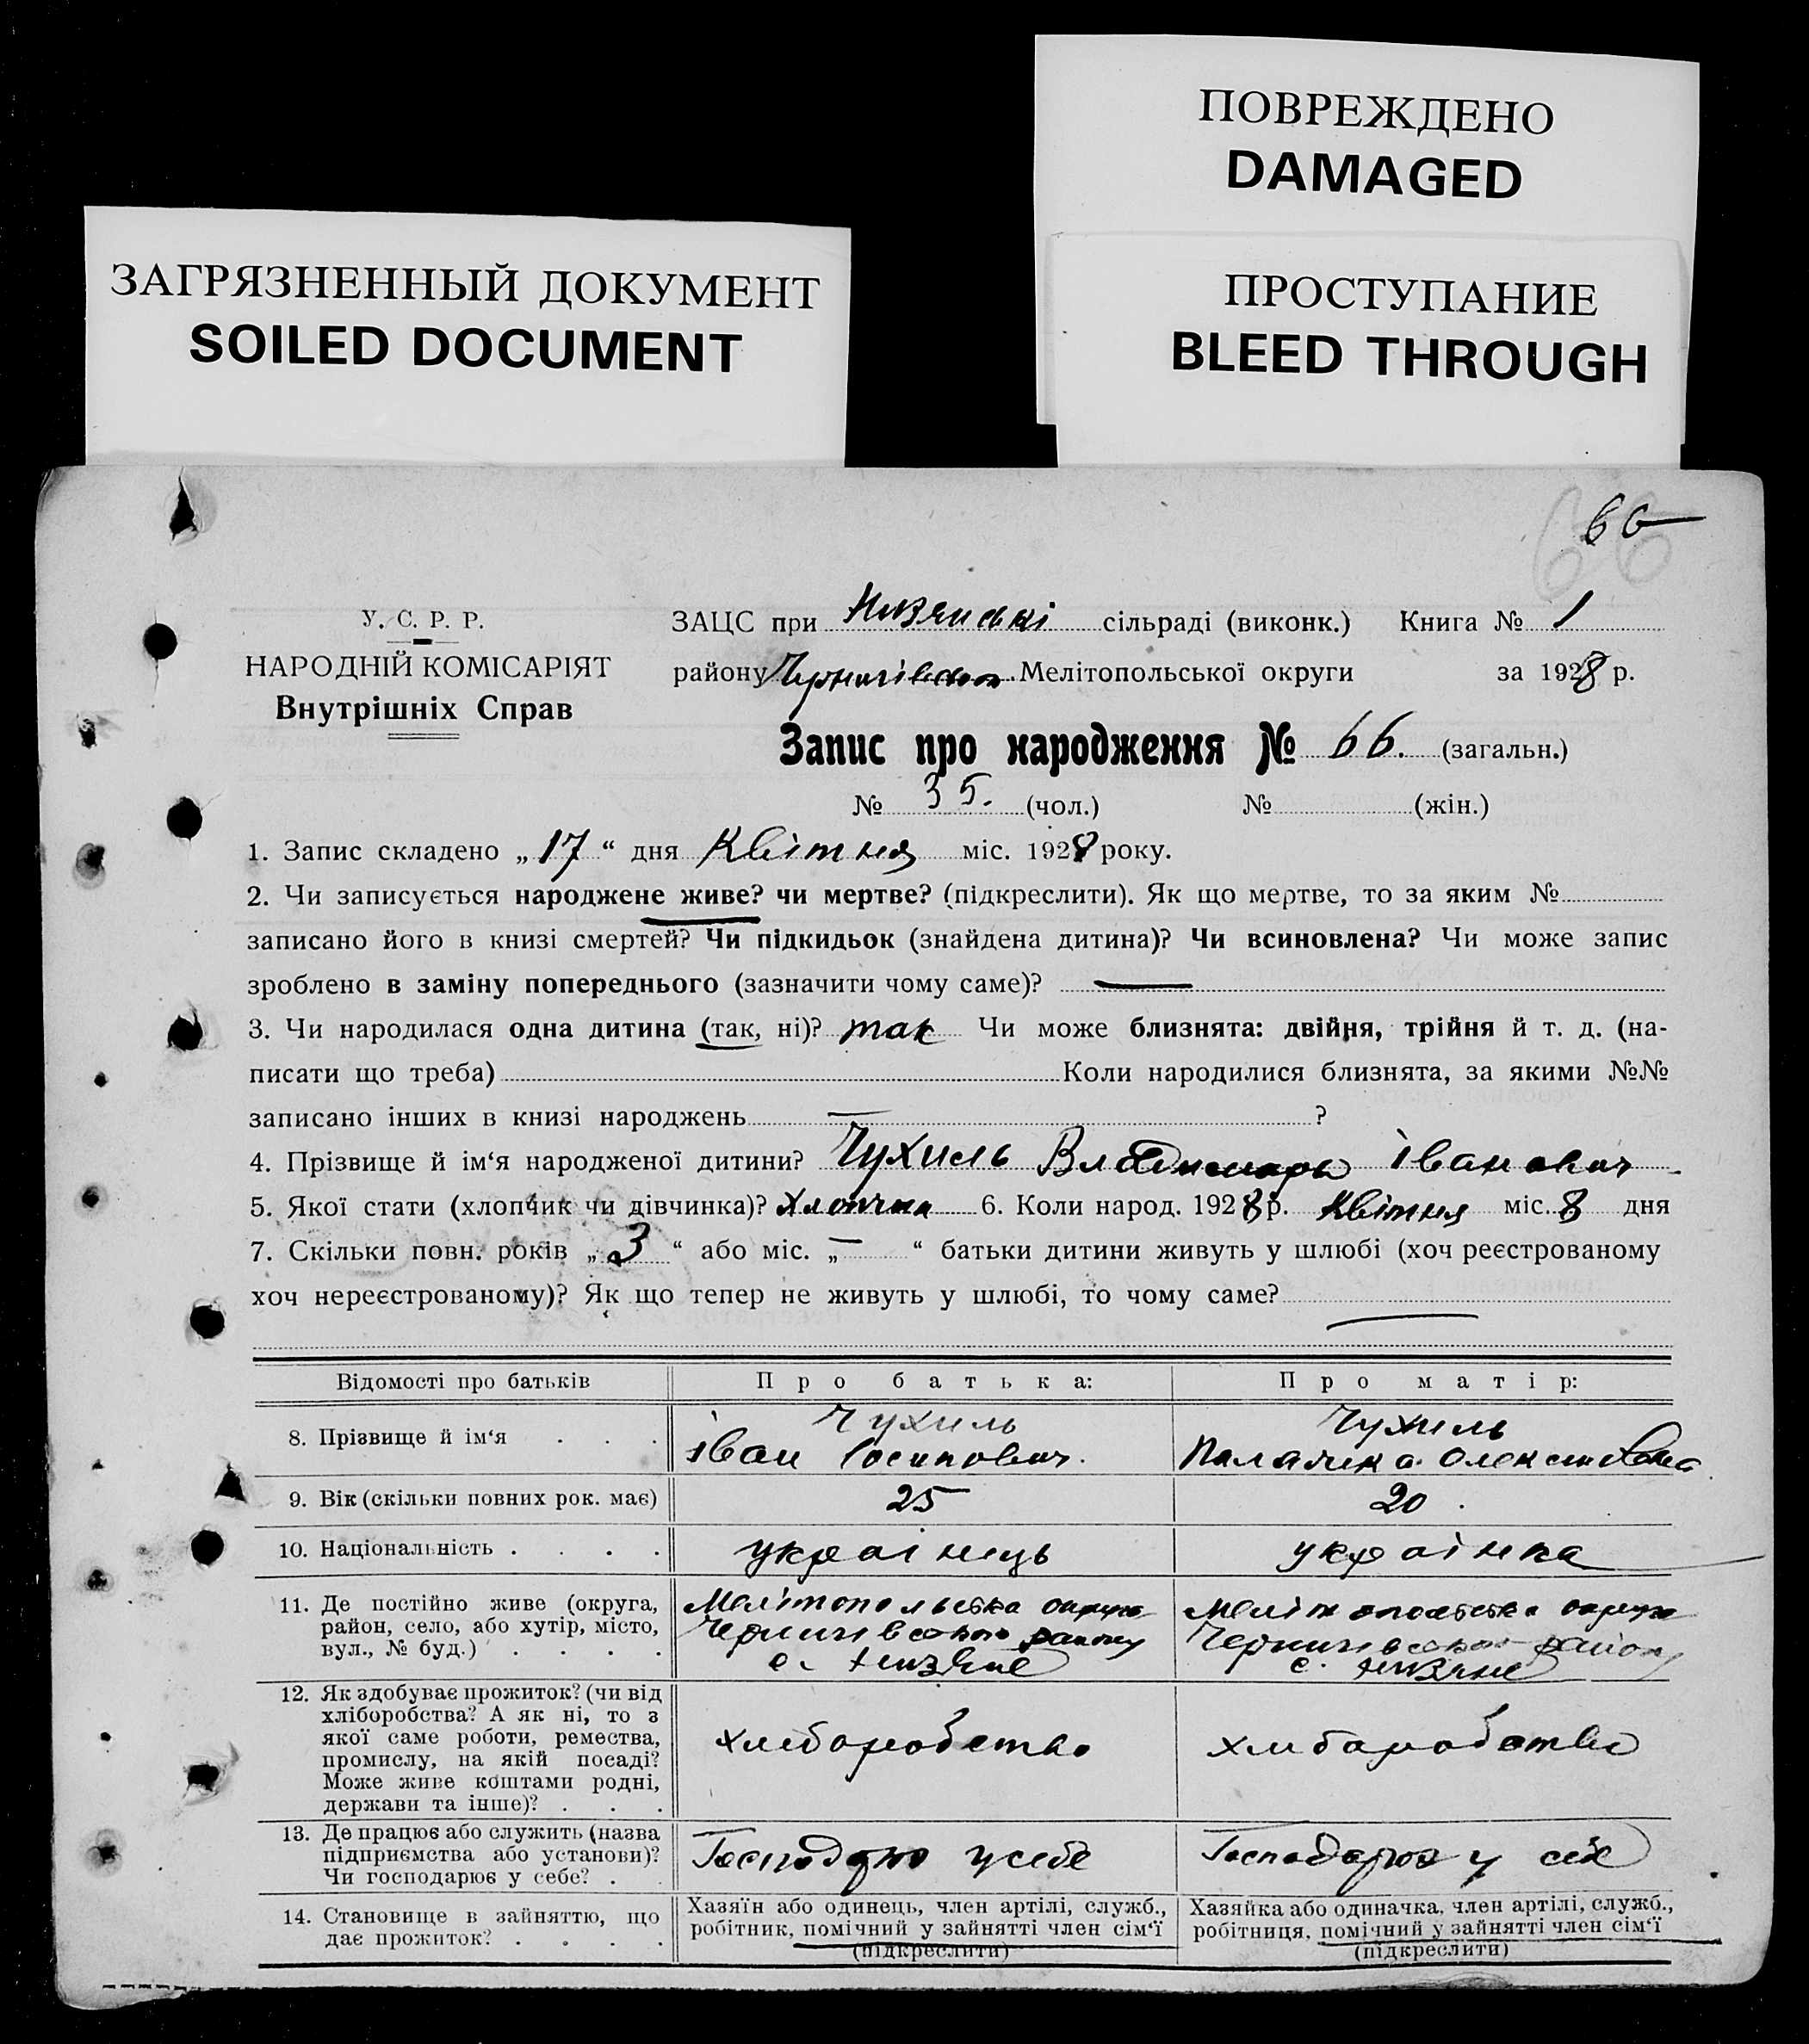 ПОВРЕЖДЕНО
DAMAGED
ЗАГРЯЗНЕННЫЙ ДОКУМЕНТ
SOILED DOCUMENT
ПРОСТУПАНИЕ
BLEED THROUGH
66
66
У. С. Р. Р.
НАРОДНІЙ КОМІСАРІЯТ
Внутрішніх Справ
ЗАЦС при сільраді (виконк.) Книга № 1
району Мелітопольської округи за 1928 р.
Запис про народження № 66. (загальн.)
№ 35. (чол.) № (жін.)
1. Запис складено „ 17 “ дня Квітня міс. 1928 року.
2. Чи записується народжене живе? чи мертве? (підкреслити). Як що мертве, то за яким №
записано його в книзі смертей? Чи підкидьок (знайдена дитина)? Чи всиновлена? Чи може запис
зроблено в заміну попереднього (зазначити чому саме)? —
3. Чи народилася одна дитина (так, ні)? так Чи може близнята: двійня, трійня й т. д. (на-
писати що треба) Коли народилися близнята, за якими №№
записано інших в книзі народжень — ?
4. Прізвище й ім‘я народженої дитини? Чухиль Іванович
5. Якої стати (хлопчик чи дівчинка)? 6. Коли народ. 1928 р. Квітня міс. 8 дня
7. Скільки повн. років „ 3 “ або міс. „ — “ батьки дитини живуть у шлюбі (хоч реєстрованому
хоч нереєстрованому)? Як що тепер не живуть у шлюбі, то чому саме? —
Відомості про батьків Про батька: Про матір:
8. Прізвище й ім‘я Чухиль Іван Чухиль
9. Вік (скільки повних рок. має) 25 20.
10. Національність українець українка
11. Де постійно живе (округа,
район, село, або хутір, місто,
вул., № буд.)
Мелітопольська округа
Чернигівського району
с.
Мелітопольська округа
Чернигівського району
с.
12. Як здобуває прожиток? (чи від
хліборобства? А як ні, то з
якої саме роботи, ремества,
промислу, на якій посаді?
Може живе коштами родні,
держави та інше)?
хліборобство хліборобство
13. Де працює або служить (назва
підприємства або установи)?
Чи господарює у себе?
у себе у себе
14. Становище в зайняттю, що
дає прожиток?
Хазяїн або одинець, член артілі, служб.,
робітник, помічний у зайнятті член сім‘ї
(підкреслити)
Хазяйка або одиначка, член артілі, служб.,
робітниця, помічний у зайнятті член сім‘ї
(підкреслити)